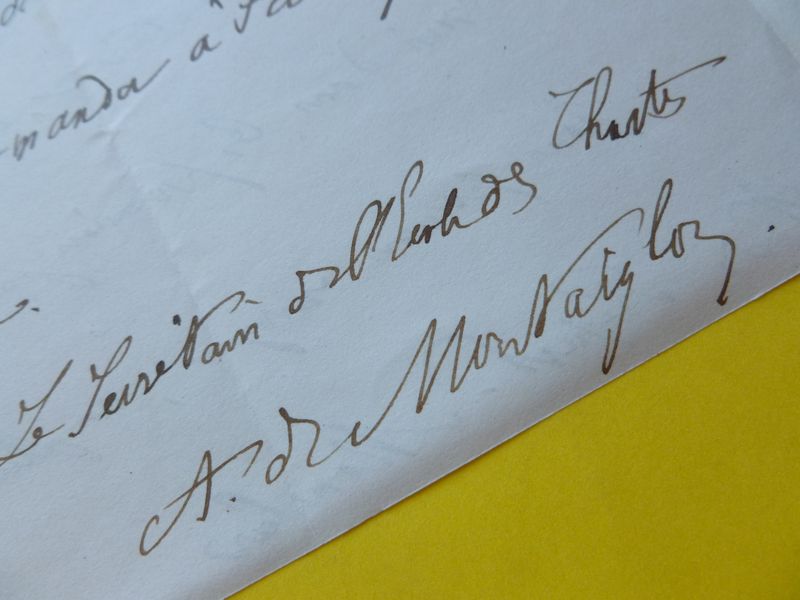 manda à
Le Secrétaire de l'École des Chartes
A. de Montaiglon.